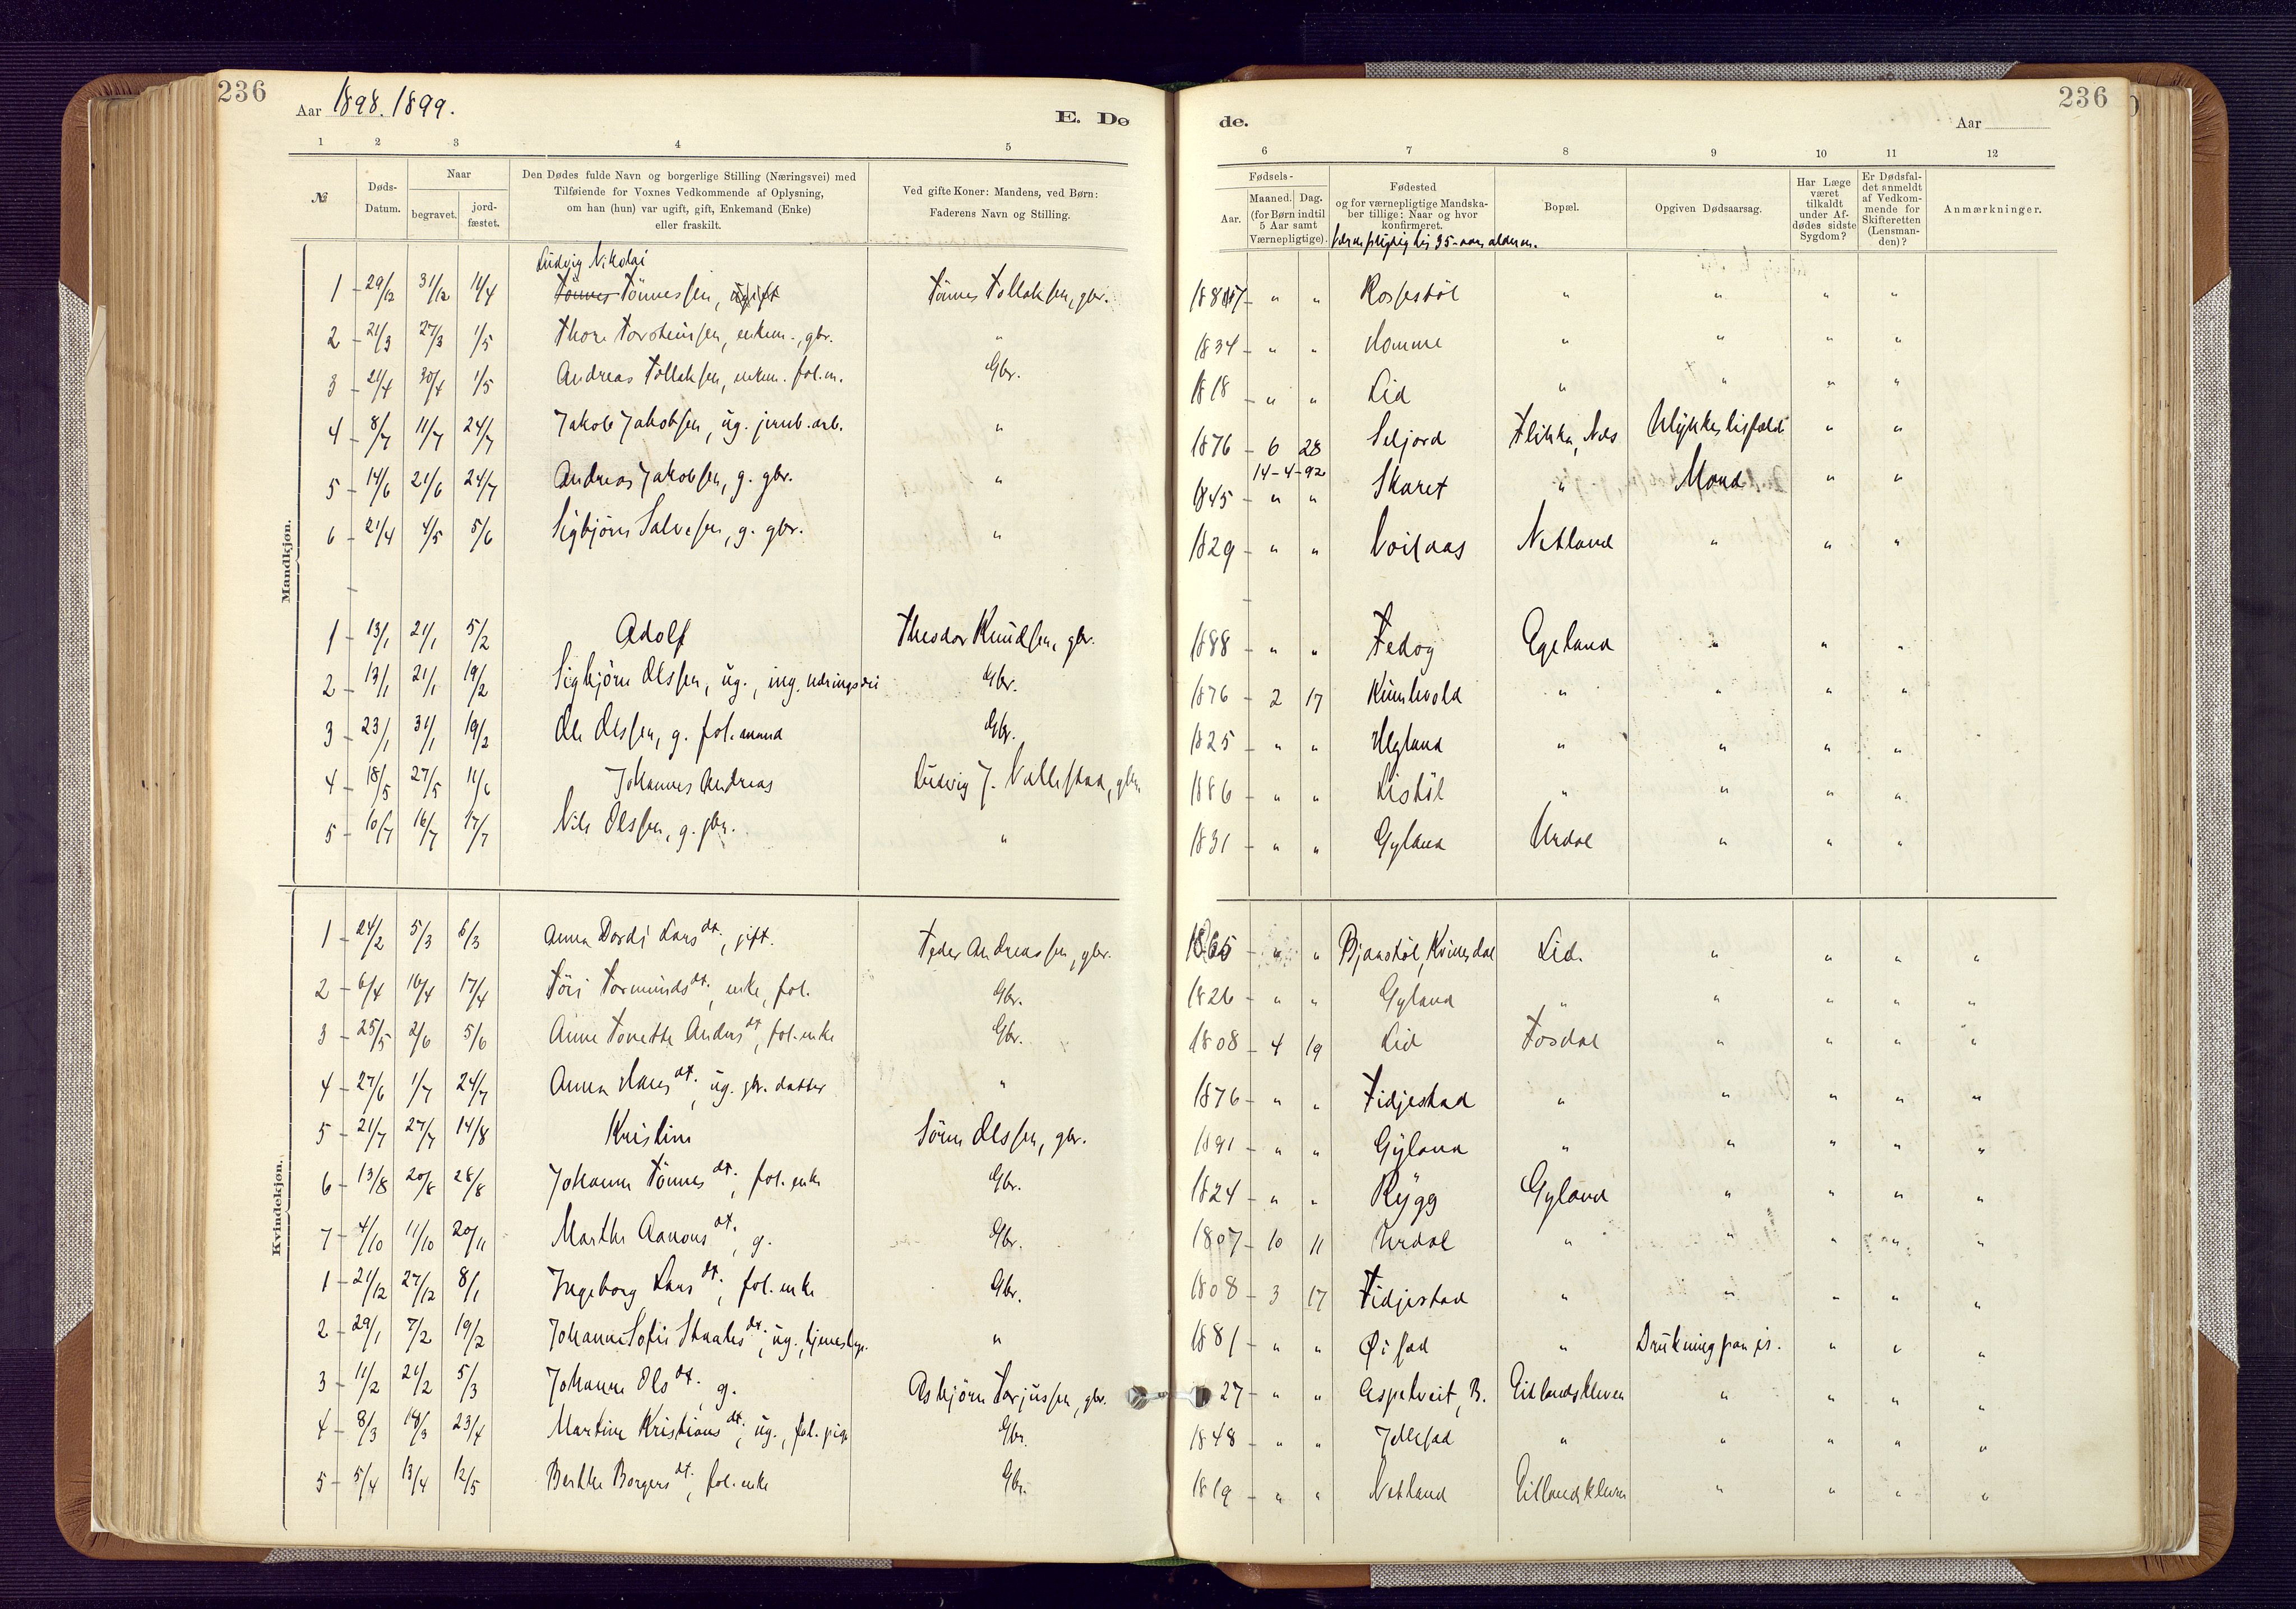 236
Aar 1898. 1899.
E. Dø
1 2 3 4 5
№
Døds-Datum.
Naar
begravet.
jord-fæstet.
Den Dødes fulde Navn og borgerlige Stilling (Næringsvei) med
Tilføiende for Voxnes Vedkommende af Oplysning,
om han (hun) var ugift, gift, Enkemand (Enke)
eller fraskilt.
Ved gifte Koner: Mandens, ved Børn:
Faderens Navn og Stilling.
Mandkjøn.
Ludvig Nikolai
1 29/12 31/12 11/4 Tønnes Tønnessen, ugift Tønnes Tollaksen, gbr.
2 21/3 27/3 1/5 Thore Torsteinsen, enkem., gbr. "
3 21/4 30/4 1/5 Andreas Tollaksen, enkem. fol.m. Gbr.
4 8/7 11/7 24/7 Jakob Jakobsen, ug. jernb.arb. "
5 14/6 21/6 24/7 Andreas Jakobsen, g. gbr. "
6 21/4 4/5 5/6 Sigbjørn Salvesen, g. gbr. "
1 13/1 21/1 5/2 Adolf Theodor Knudsen, gbr.
2 13/1 21/1 19/2 Sigbjørn Olssen, ug., ing. næringsvei Gbr.
3 23/1 31/1 19/2 Ole Olssen, g. fol.mand Gbr.
4 18/5 27/5 11/6 Johannes Andreas Ludvig J. Vallestad, gbr.
5 10/7 16/7 17/7 Nils Olssen, g. gbr. "
Kvindekjøn.
1 24/2 5/3 6/3 Anna Dordi Larsdt., gift. Peder Andreassen, gbr.
2 6/4 16/4 17/4 Töri Tormundsdt., enke, fol. Gbr.
3 25/5 2/6 5/6 Anne Tonette Andersdt., fol.enke Gbr.
4 27/6 1/7 24/7 Anna Hansdt., ug. gbr. datter "
5 21/7 27/7 14/8 Kristine Sören Olssen, gbr.
6 13/8 20/8 28/8 Johanne Tönnesdt., fol. enke Gbr.
7 4/10 11/10 20/11 Marthe Aanonsdt., g. Gbr.
1 21/12 27/12 8/1 Ingeborg Larsdt., fol. enke Gbr.
2 29/1 7/2 19/2 Johanne Sofie Staalesdt., ug., tjenestepi. "
3 11/2 21/2 5/3 Johanne Olsdt. g. Asbjörn Torjussen, gbr.
4 8/3 18/3 23/4 Martine Kristiansdt., ug., fol. pige Gbr.
5 5/4 13/4 12/5 Berthe Borgersdt., fol. enke Gbr.
236
de.
Aar
6 7 8 9 10 11 12
Fødsels-
Aar.
Maaned. Dag.
(for Børn indtil
5 Aar samt
Værnepligtige).
Fødested
og for værnepligtige Mandska-
ber tillige: Naar og hvor
konfirmeret.
Værnepligtig til 35-aars alderen.
Bopæl.
Opgiven Dødsaarsag.
Har Læge
været
tilkaldt
under Af-
dødes sidste
Sygdom?
Er Dødsfal-
det anmeldt
af Vedkom-
mende for
Skifteretten
(Lensman-
den)?
Anmærkninger.
" " Rossestöl " " " "
1834 " " Homme " " " "
1818 " " Lid " " " "
1876 6 28 Seljord Flikka, Nds Ulykkestilfælde " "
14-4-92
1845 " " Skaret " Mord " "
1829 " " Netland " " "
1888 " " Fedog Egeland " " "
1876 2 17 Kumlevold " " " "
1825 " " Hegland " " " "
1886 " " Listöl " " " "
1831 " " Gyland Urdal " " "
1865 " " Bjaastöl, Kvinesdal Lid. " " " "
1826 " " Gyland " " " " "
1808 4 19 Lid Fosdal " " " "
1876 " " Fidjestad " " " " "
1891 " " Gyland " " " " "
1824 " " Rygg Gyland " " " "
1807 10 11 Urdal " " " " "
1808 3 17 Fidjestad " " " " "
1881 " " " Drukning paa is. " " "
27 " " Aspetveit, B. Eitlandskleven " " " "
1848 " " " " " " "
1819 " " Netland Eitlandskleven " " " "